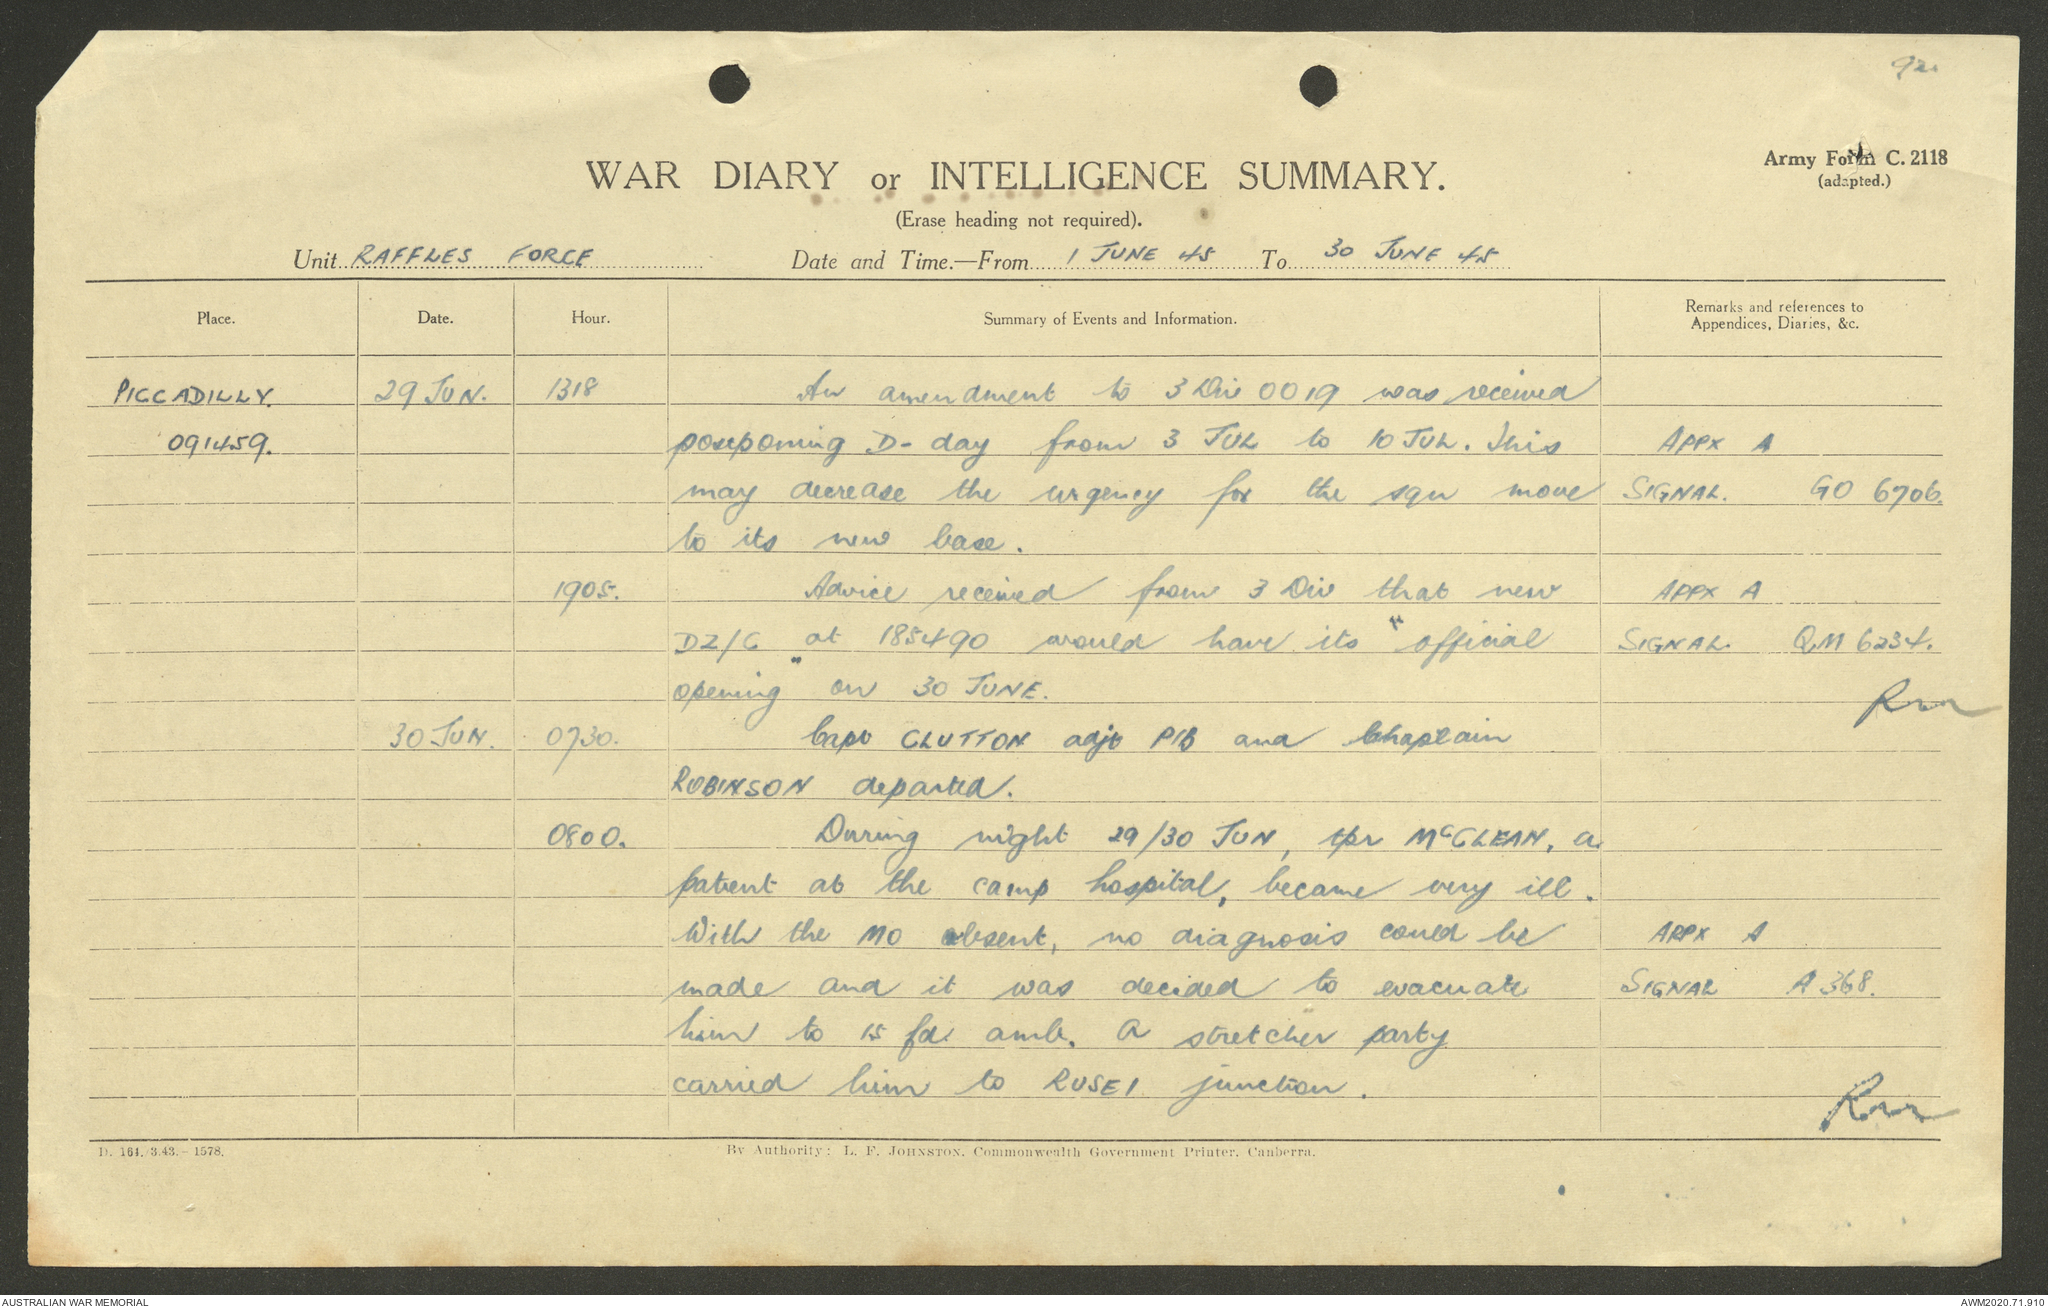 92.
Army Form C. 2118
(adapted.)
WAR DIARY or INTELLIGENCE SUMMARY.
(Erase heading not required).
Unit RAFFLES FORCE Date and Time.—From 1 JUNE 45 To 30 JUNE 45
Place. Date. Hour. Summary of Events and Information. Remarks and references to
Appendices, Diaries, &c.
PICCADILLY. 29 JUN. 1318 An amendment to 3 Div OO 19 was received
091459. postponing D-day from 3 JUL to 10 JUL. This APPX A
may decrease the urgency for the sqn move SIGNAL. GO 6706.
to its new base.
1905. Advice received from 3 Div that new APPX A
DZ/C at 185490 would have its "official SIGNAL. QM 6234.
opening" on 30 JUNE.
30 JUN. 0730. Capt CLUTTON adjt PIB and Chaplain
ROBINSON departed.
0800. During night 29/30 JUN, tpr McCLEAN, a
patient at the camp hospital, became very ill.
With the MO absent, no diagnosis could be APPX A
made and it was decided to evacuate SIGNAL A 368.
him to 15 fd. amb. A stretcher party
carried him to RUSEI junction.
D. 164. 3.43.—1578. By Authority: L. F. JOHNSTON, Commonwealth Government Printer, Canberra.
AUSTRALIAN WAR MEMORIAL AWM2020.71.910